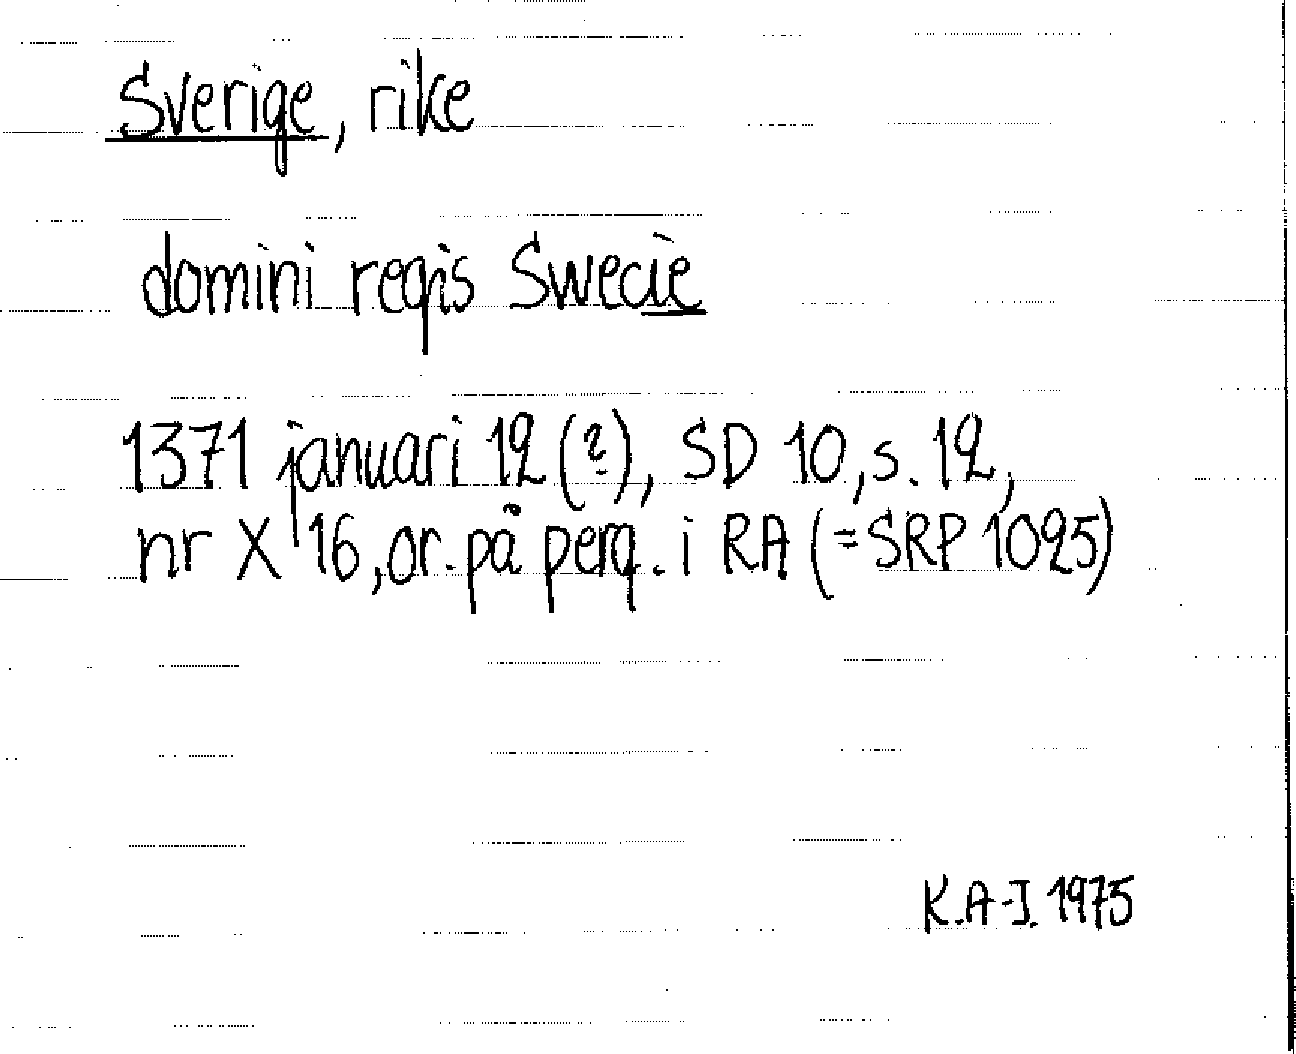 Sverige, rike
domini regis Swecie
1371 januari 12 (?), SD 10, s. 12,
nr X 16, or. på perg. i RA (=SRP 1025)
K.A-I. 1975